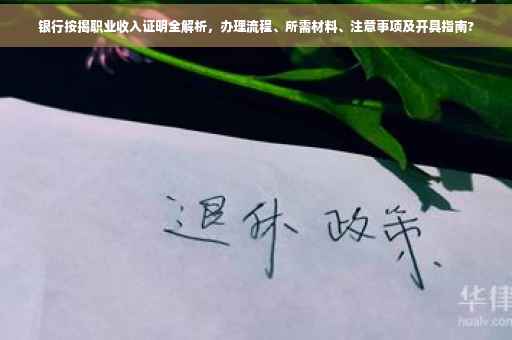 银行按揭职业收入证明全解析，办理流程、所需材料、注意事项及开具指南?
退休 政策
华律
hualv.com